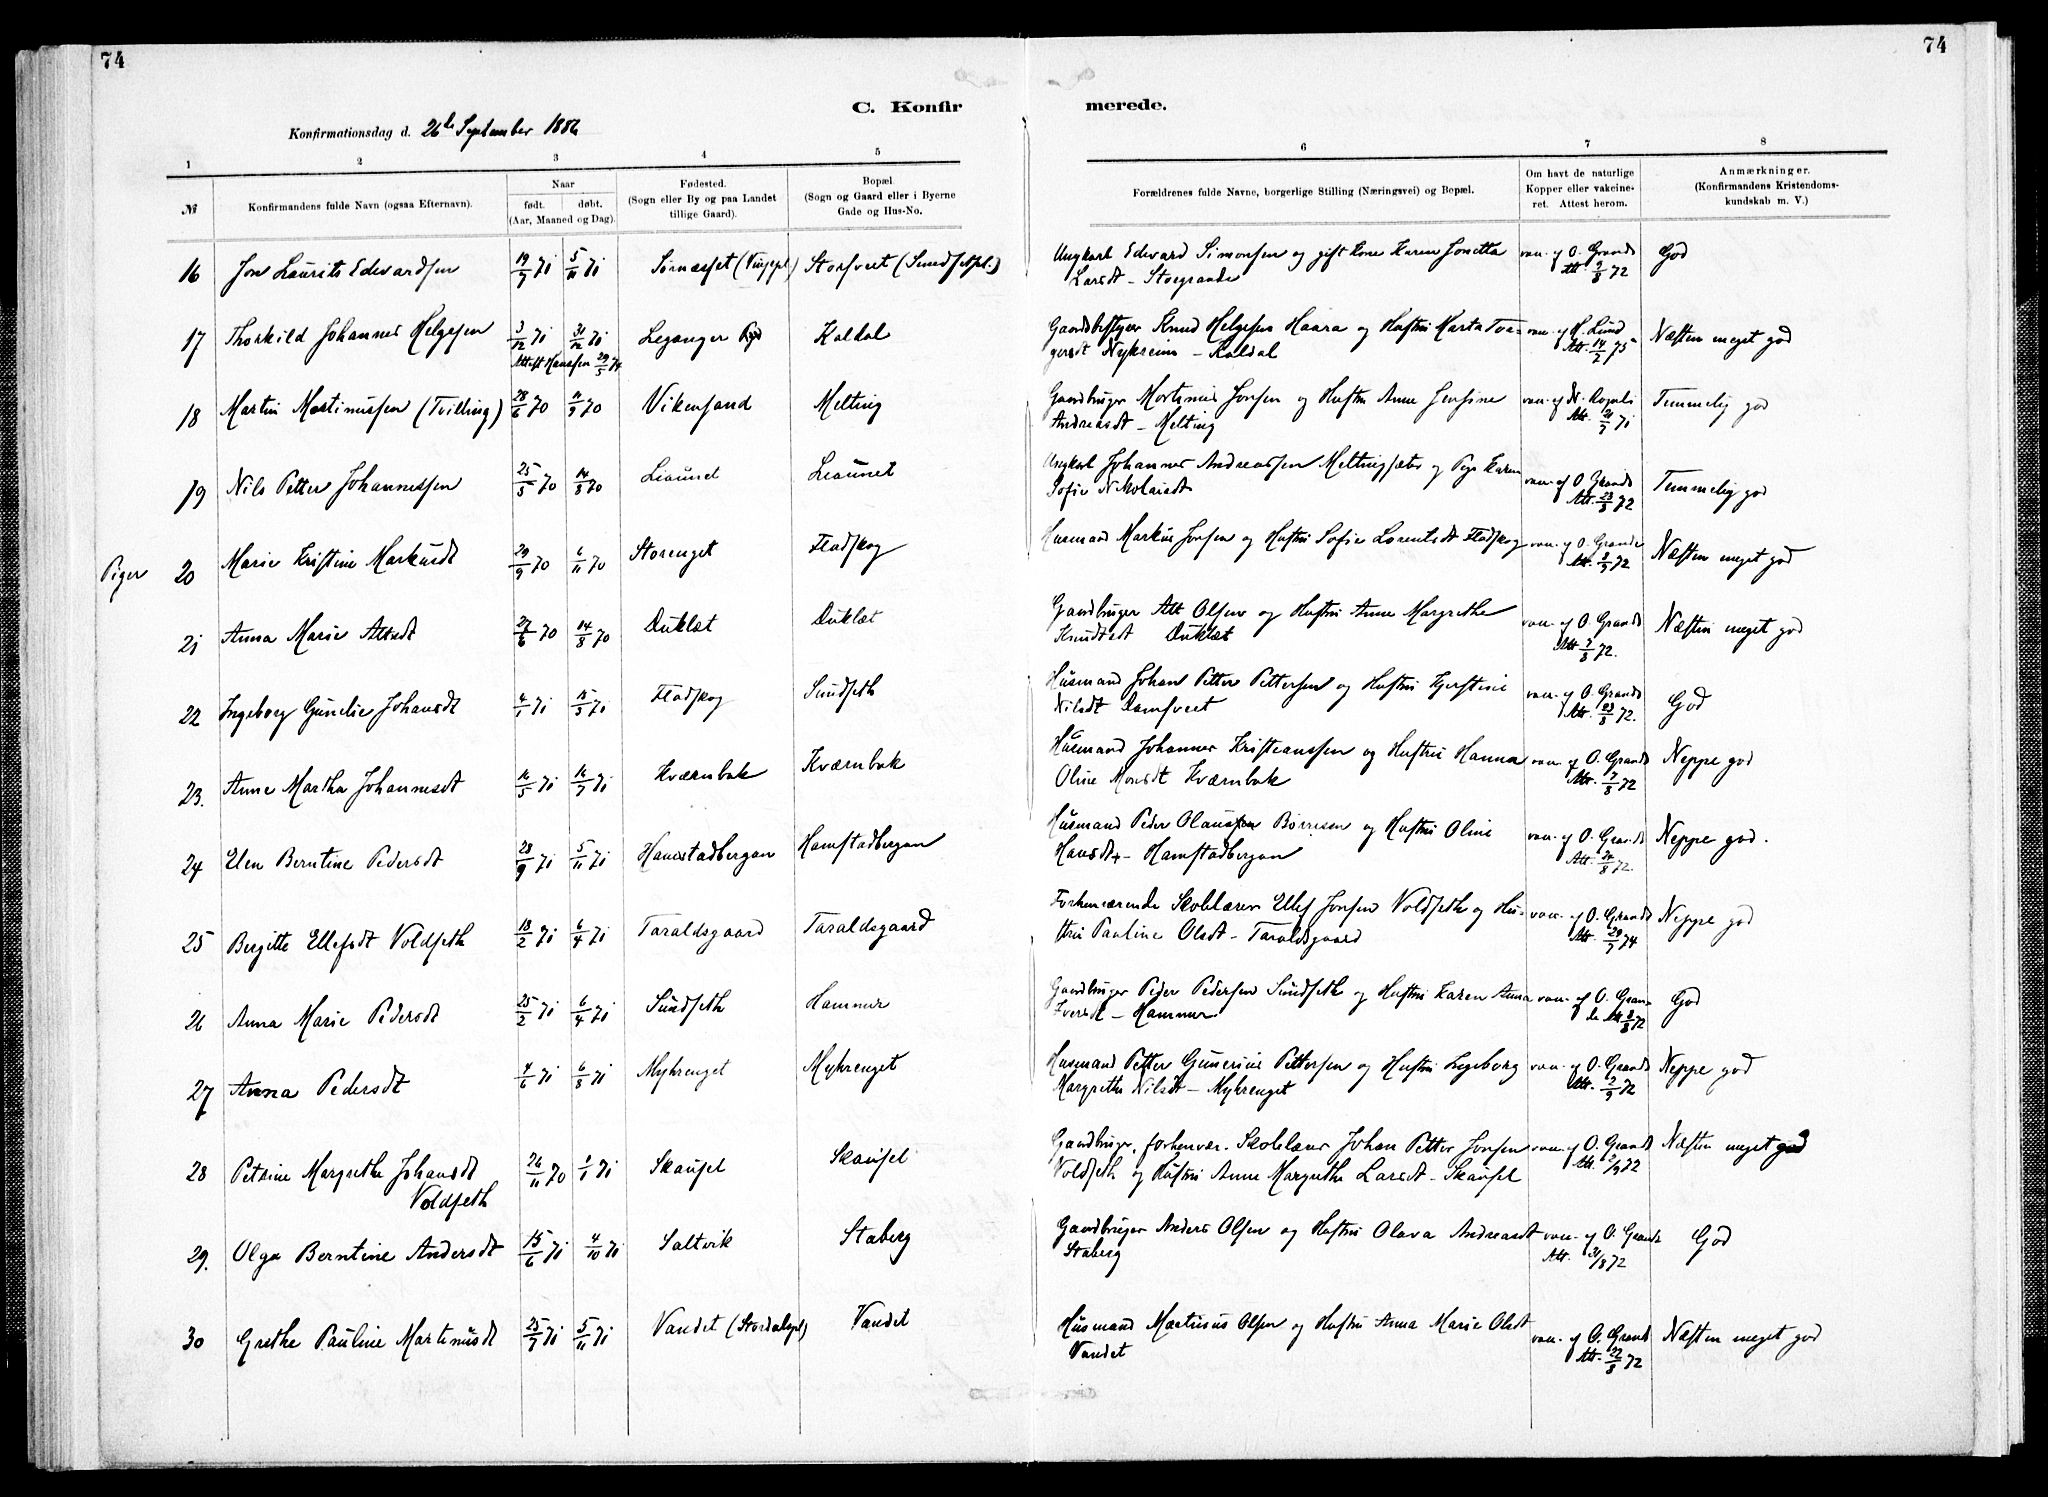 74
74
C. Konfir
merede.
Konfirmationsdag d. 26de September 1886
1 2 3 4 5 6 7 8
№
Konfirmandens fulde Navn (ogsaa Efternavn).
Naar
født. døbt.
(Aar, Maaned og Dag).
Fødested.
(Sogn eller By og paa Landet
tillige Gaard).
Bopæl.
(Sogn og Gaard eller i Byerne
Gade og Hus-No.
Forældrenes fulde Navne, borgerlige Stilling (Næringsvei) og Bopæl.
Om havt de naturlige
Kopper eller vakcine-
ret. Attest herom.
Anmærkninger.
(Konfirmandens Kristendoms-
kundskab m. V.)
16 Jon Laurits Edvardsen 19/7 71 5/11 71 Storsvert Ungkarl Edvard Simonsen og gift Kone Karen Jonetta vac. af O. Grande God
Larsdt - Storgrande Att. 9/8 72
17 Thorkild Johannes Helgesen 3/12 71 31/12 71 Leganger Kaldal Gaardbestyrer Knud Helgesen Haara og Hustru Marta vac. af H. Lund Næsten meget god
Attest Hanssen 29/5 74 Nykreim - Kaldal Att. 14/7 75
18 Martin Martinussen (Tvilling) 28/6 70 11/9 70 Vikensand Melting Gaardbruger Martinus Jonsen og Hustru Anne Jensine vac. af Temmelig god
Andreasdt - Melting Att. 21/7 71
19 Nils Petter Johannessen 25/5 70 14/8 70 Liaunet Liaunet Ungkarl Johannes Andreassen Meltingsæter og Pige Karen vac. af O Grande Temmelig god
Sofie Nikolaisdt Att. 23/8 72
Piger 20 Marie Kristine Markusdt 29/9 70 6/11 70 Storenget Fladskog Husmand Markus Jonsen og Hustru Sofie Lorentsdt Fladskog vac. af O. Grande Næsten meget god
Att. 2/9 72
21 Anna Marie Altsdt 27/6 70 14/8 70 Duklæt Duklæt Gaardbruger Alt Olsen og Hustru Anne Margrethe vac. af O Grande Næsten meget god
Knudtsdt Duklæt Att 9/8 72.
22 Ingeborg Gunelie Johansdt 4/1 71 15/3 71 Fladskog Sundseth Husmand Johan Petter Pettersen og Hustru Kjerstine vac. af O. Grande God
Nilsdt Damsvert Att. 23/8 72.
23. Anne Martha Johannesdt 16/5 71 16/7 71 Kværnbak Kværnbak Husmand Johannes Kristianssen og Hustru Hanna vac. af O. Grande Neppe god
Oline Monsdt Kværnbak Att. 7/8 72
24 Elen Berntine Pedersdt 28/9 71 5/11 71 Hamstadbergan Hamstadbergan Husmand Peder Olaussen Børresen og Hustru Oline vac. af O. Grande Neppe god.
Hansdt - Hamstadbergan Att. 24/8 72.
25 Bergitte Ellefsdt Voldseth 18/2 71 6/4 71 Taraldsgaard Taraldsgaard Forhenværende Skolelærer Ellef Jonsen Voldseth og Hu- vac. af O. Grande Neppe god
stru Pauline Olsdt - Taraldsgaard Att. 29/7 74
26 Anna Marie Pedersdt 25/2 71 6/4 71 Sundseth Hammer Gaardbruger Peder Pedersen Sundseth og Hustru Karen Anna vac. af O. Gran- God
Iversdt - Hammer de Att 8/8 72
27 Anna Pedersdt 4/6 71 6/8 71 Myhrenget Myhrenget Husmand Petter Gunerius Pettersen og Hustru Ingeborg vac. af O. Grande Neppe god
Margrethe Nilsdt - Myhrenget Att. 2/9 72
28 Petrine Margrethe Johansdt 26/11 70 1/1 71 Skaufel Skaufel Gaardbruger, forhenvær. Skolelærer Johan Petter Jonsen vac. af O. Grande Næsten meget god
Voldseth Voldseth og Hustru Anne Margrethe Larsdt - Skaufel Att. 2/9 72
29. Olga Berntine Andersdt 15/6 71 4/10 71 Saltvik Staberg Gaardbruger Anders Olsen og Hustru Olava Andreasdt vac. af O. Grande God
Staberg Att. 31/8 72
30 Grethe Pauline Martinusdt 25/7 71 5/11 71 Vandet (Stordalspl) Vandet Husmand Martinus Olsen og Hustru Anna Marie Olsdt vac. af O. Grande Næsten meget god
Vandet Att. 22/8 72